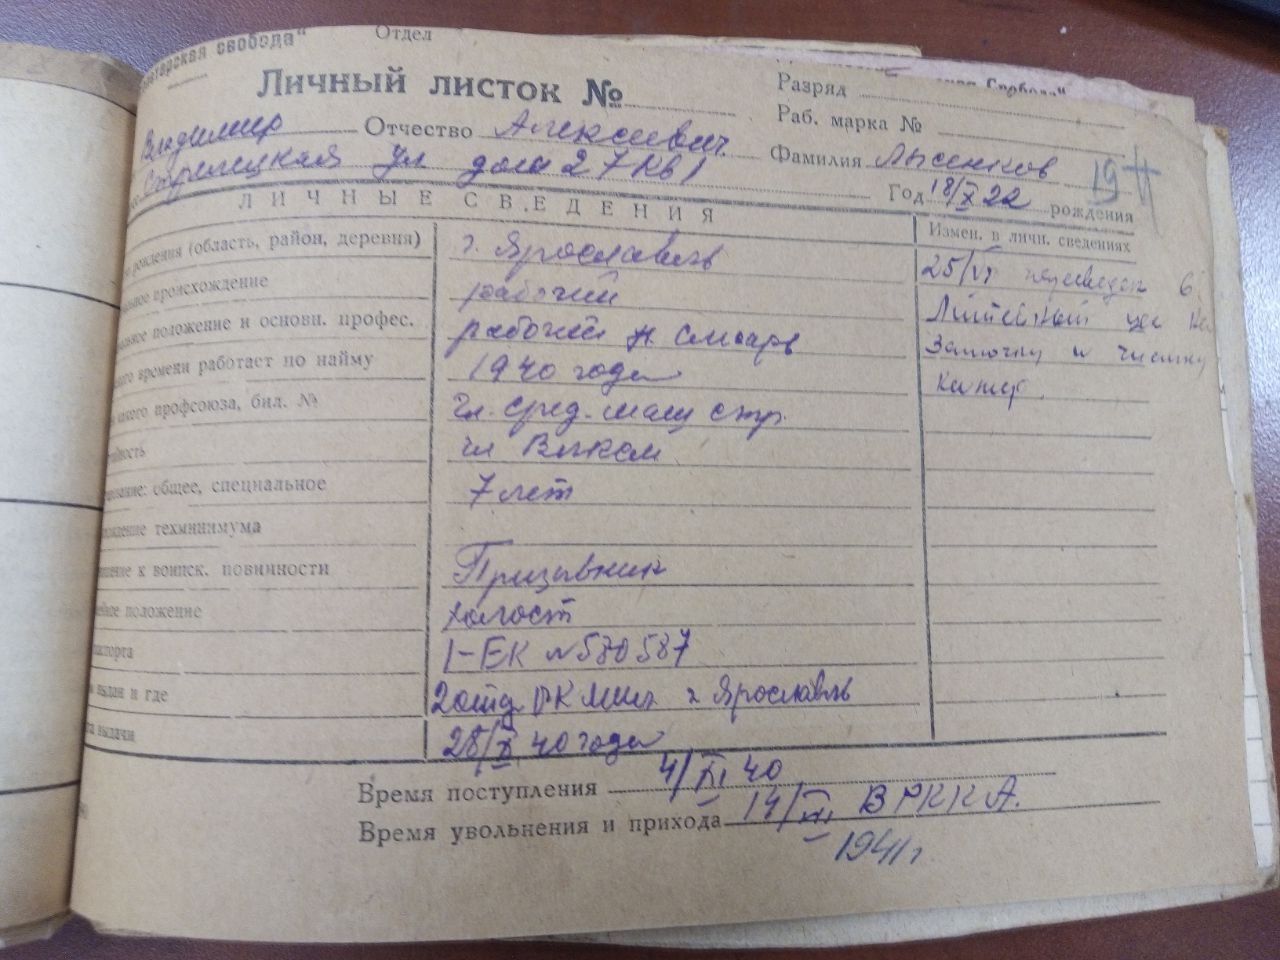 терская свобода"
Отдел
Личный листок №
Разряд
Раб. марка №
Владимир Отчество Алексеевич
Фамилия Лысенков
Стрелецкая ул дом 27 кв 1
Год 18/X 22 рождения
19
ЛИЧНЫЕ СВЕДЕНИЯ
Измен. в личн. сведениях
рождения (область, район, деревня) г. Ярославль
25/VI переведен в
происхождение рабочий
Литейный цех на
положение и основн. профес. рабочий слесарь
Заточку и чистку
времени работает по найму 1940 года
какого профсоюза, бил. № чл. сред. маш стр.
чл Влксм
общее, специальное 7 лет
техминимума
к воинск. повинности Призывник
положение холост
I-ЕК №580587
выдан и где 2 отд РК Мил г Ярославль
выдачи 28/X 40 года
Время поступления 4/XI 40
Время увольнения и прихода 14/III В РККА.
1941 г